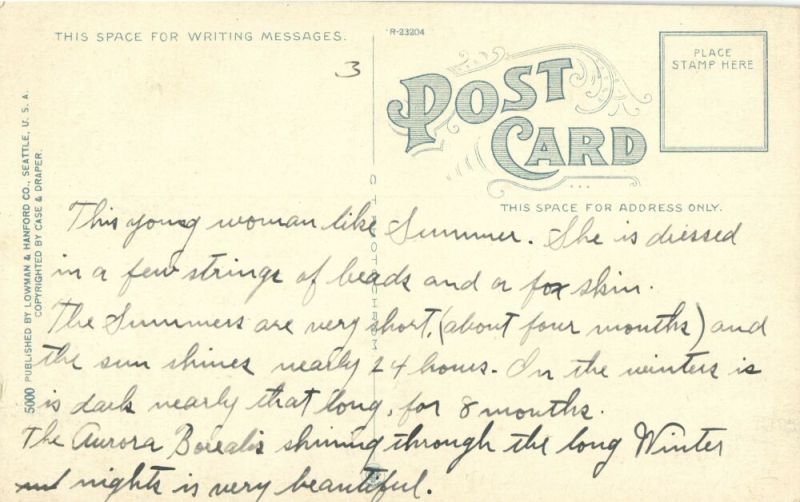 THIS SPACE FOR WRITING MESSAGES.
R-23204
3
POST
CARD
PLACE
STAMP HERE
THIS SPACE FOR ADDRESS ONLY.
5000 PUBLISHED BY LOWMAN & HANFORD CO., SEATTLE, U. S. A.
COPYRIGHTED BY CASE & DRAPER.
This young woman like Summer. She is dressed
in a few strings of beads and a fox skin.
The Summers are very short, (about four months) and
the sun shines nearly 24 hours. In the winters is
is dark nearly that long, for 8 months.
The Aurora Borealis shining through the long Winter
nights is very beautiful.